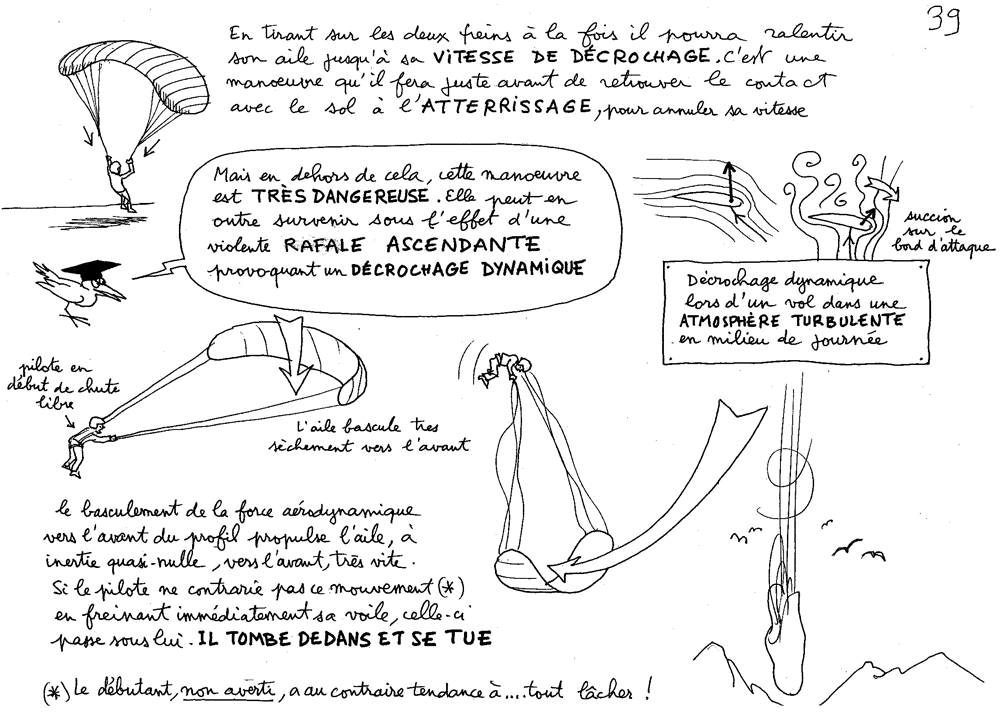 39
En tirant sur les deux freins à la fois il pourra ralentir
son aile jusqu'à sa VITESSE DE DÉCROCHAGE. C'est une
manoeuvre qu'il fera juste avant de retrouver le contact
avec le sol à l'ATTERRISSAGE, pour annuler sa vitesse
Mais en dehors de cela, cette manoeuvre
est TRÈS DANGEREUSE. Elle peut en
outre survenir sous l'effet d'une
violente RAFALE ASCENDANTE
provoquant un DÉCROCHAGE DYNAMIQUE
succion
sur le
bord d'attaque
Décrochage dynamique
lors d'un vol dans une
ATMOSPHÈRE TURBULENTE
en milieu de journée
pilote en
début de chute
libre
L'aile bascule tres
sèchement vers l'avant
le basculement de la force aérodynamique
vers l'avant du profil propulse l'aile, à
inertie quasi-nulle, vers l'avant, très vite.
Si le pilote ne contrarie pas ce mouvement (*)
en freinant immédiatement sa voile, celle-ci
passe sous lui. IL TOMBE DEDANS ET SE TUE
(*) Le débutant, non averti, a au contraire tendance à... tout lâcher !